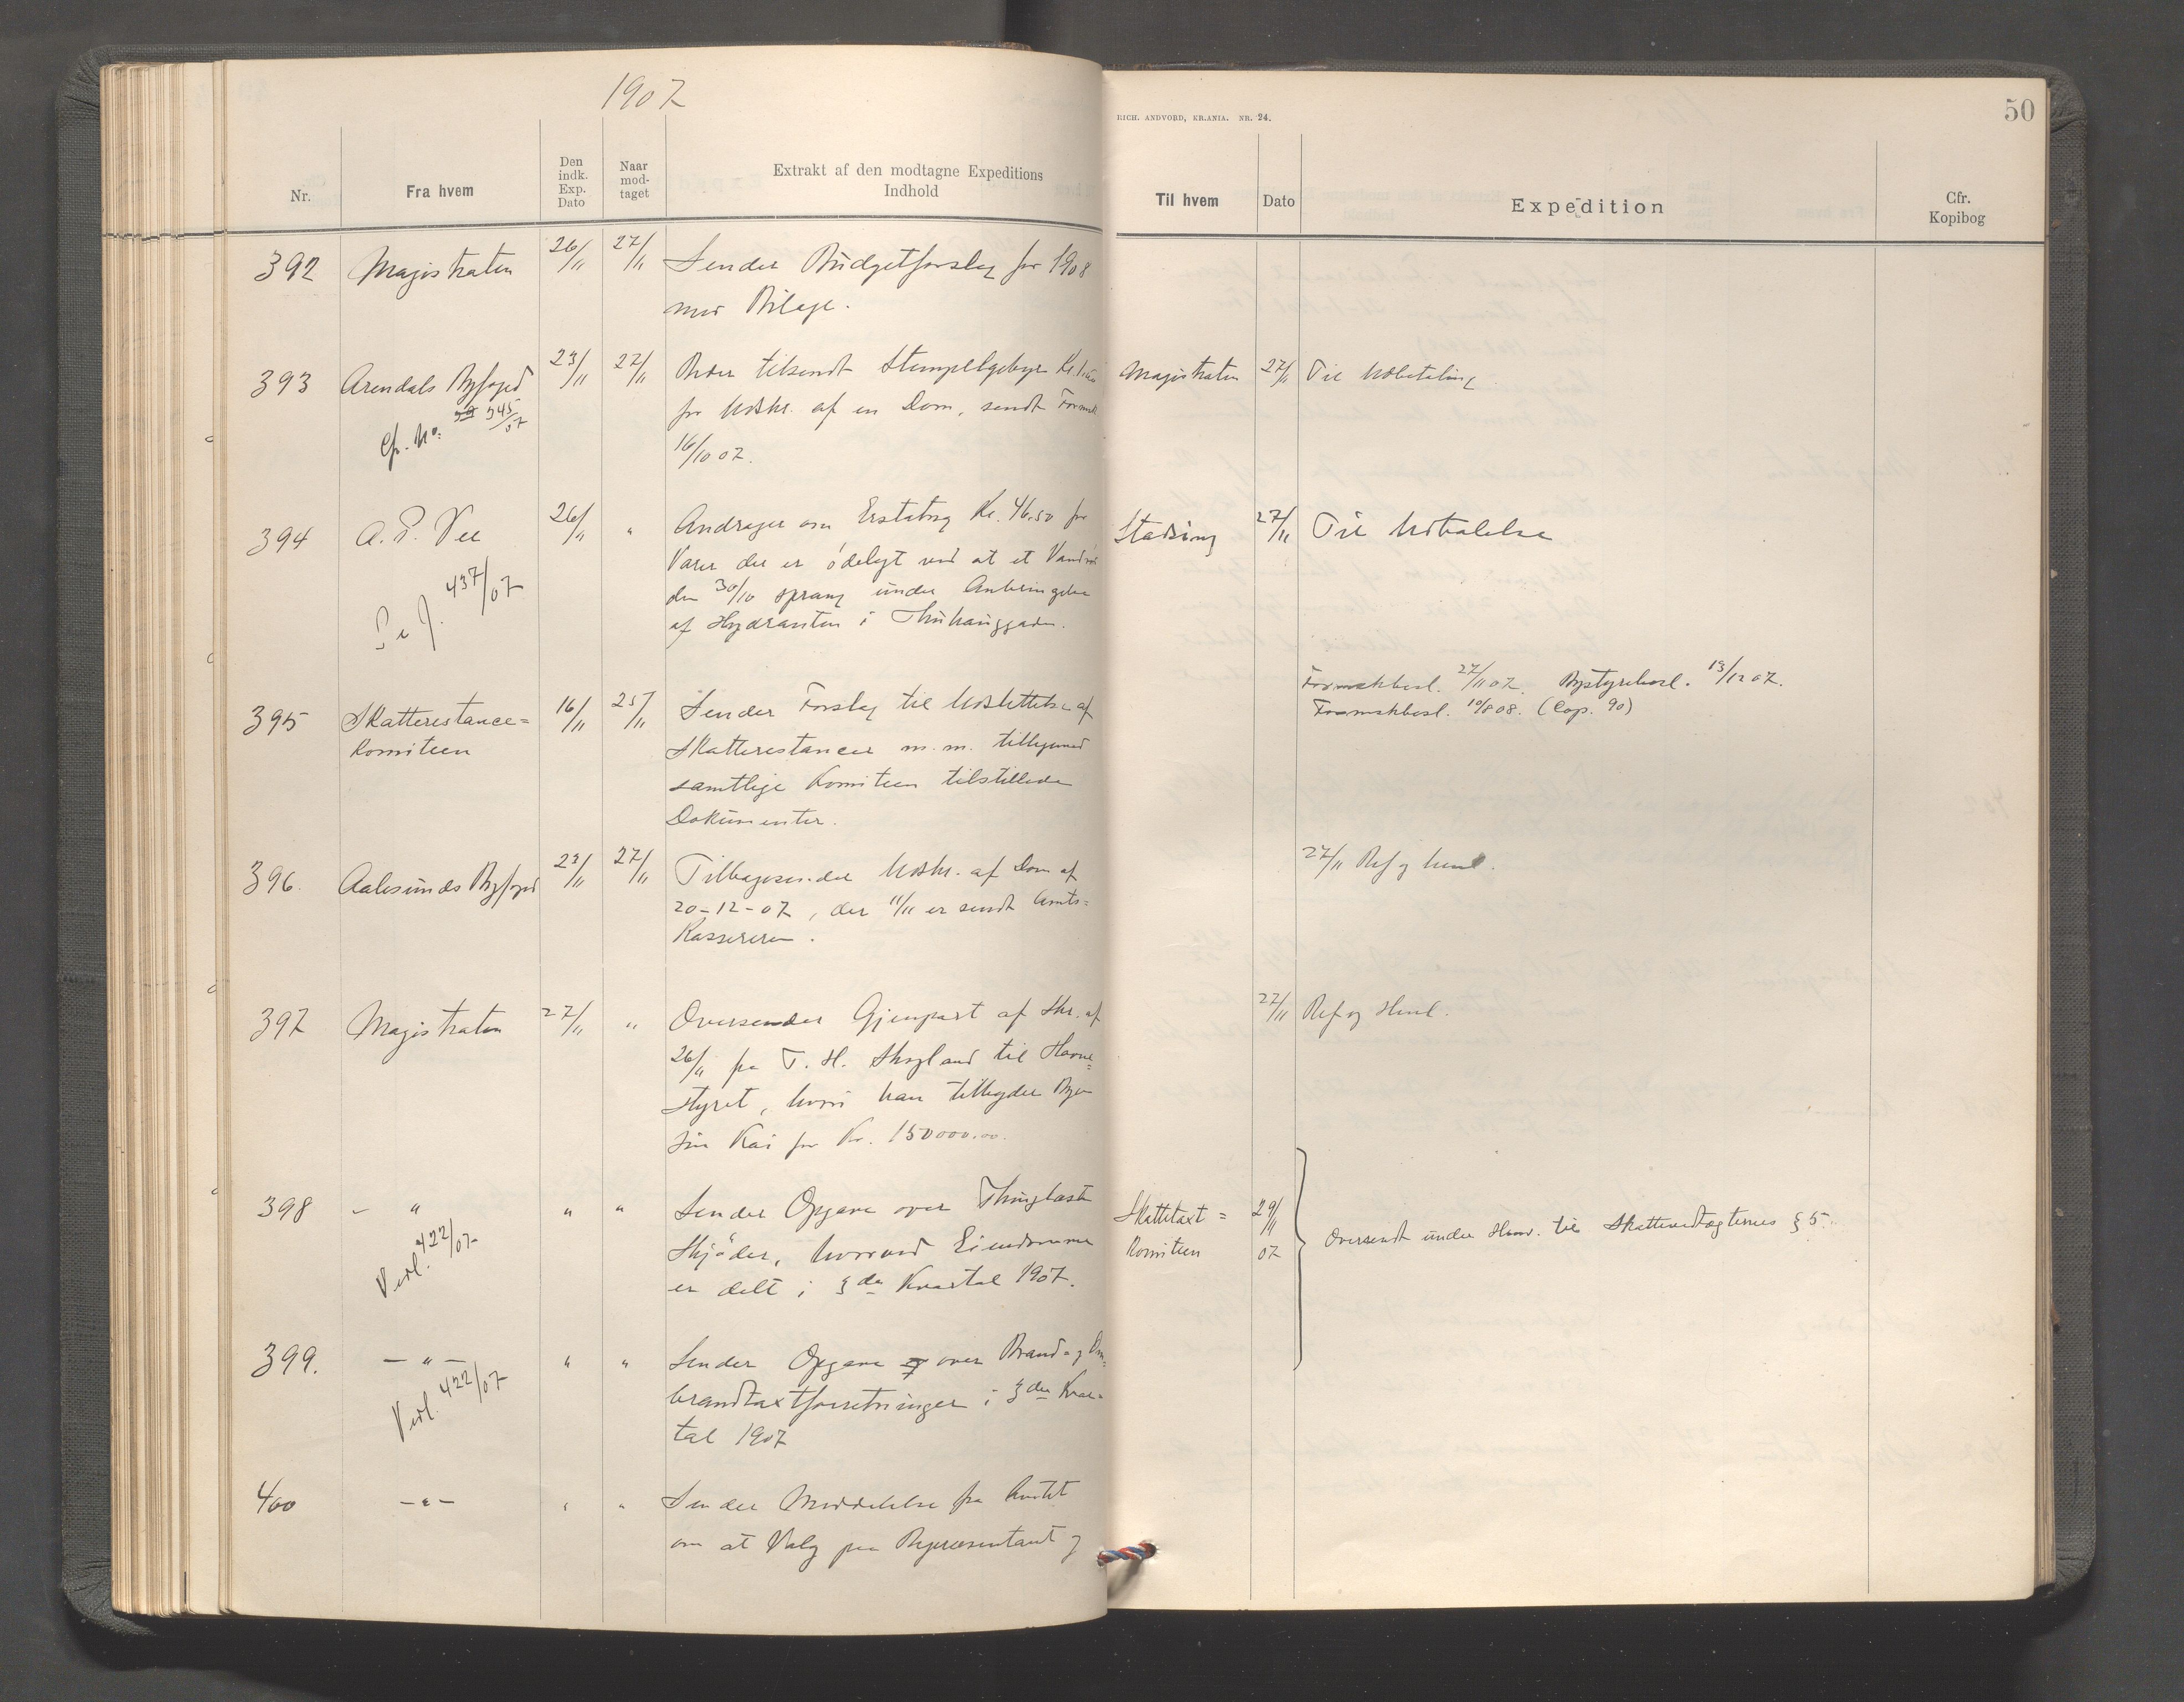 1907
Nr.
Fra hvem
Den indk. Exp. Dato
Naar mod-taget
Extrakt af den modtagne Expeditions
Indhold
392 Magistraten 26/11 27/11 Sender Budgetforslag for 1908
med Bilage.
393 Arendals Byfoged 23/11 27/11 Beder tilsendt Stempelgebyr Kr.
Cfr. No. 345/07
for Udskr. af en Dom, sendt Formsk.
16/10 07.
394 A. P. Vee 26/11 " Andrager om Erstatning Kr. 46.50 for
Varer der er ødelagt ved at et Vandrør
Se J. 437/07
den 30/10 sprang under Anbringelse
af Hydranten i Thuhauggaden.
395 Skatterestance=
Komiteen 16/11 25/11 Sender Forslag til Udslettelse af
Skatterestancer m. m. tilligemed
samtlige Komiteen tilstillede
Dokumenter.
396. Aalesunds Byfoged 23/11 27/11 Tilbagesender Udskr. af Dom af
20-12-07, der 11/11 er sendt Amts=
Kassereren.
397 Magistraten 27/11 " Oversender Gjenpart af Skr. af
26/11 fra T. H. Skogland til Havne=
styret, hvori han tilbyder Byen
sin Kai for Kr. 150000.00.
398 - " " " Sender Opgave over Thinglæste
Vedl. 422/07
Skjøder, hvorved Eiendomme
er delt i 3die Kvartal 1907.
399. - " - " " Sender Opgave over Brand- og Om=
Vedl. 422/07
brandtaxtforretninger i 3die Kvar=
tal 1907
400 - " - " " Sender Meddelelse fra Amtet
om at Valg paa Repræsentant og
RICH. ANDVORD, KR.ANIA. NR. 24.
50
Til hvem
Dato
Expedition
Cfr.
Kopibog
Magistraten 27/11 Til Udbetaling
Stadsing 27/11 Til Udtalelse
Formskbesl. 27/11 07. Bystyrebesl. 13/12 07.
Formskbesl. 10/8 08. (Cop. 90)
27/11 Ref og henl.
27/11 Ref og Henl.
Skattetaxt=
Komiteen 29/11 07 Oversendt under Henv. til Skattevedtægternes § 5.